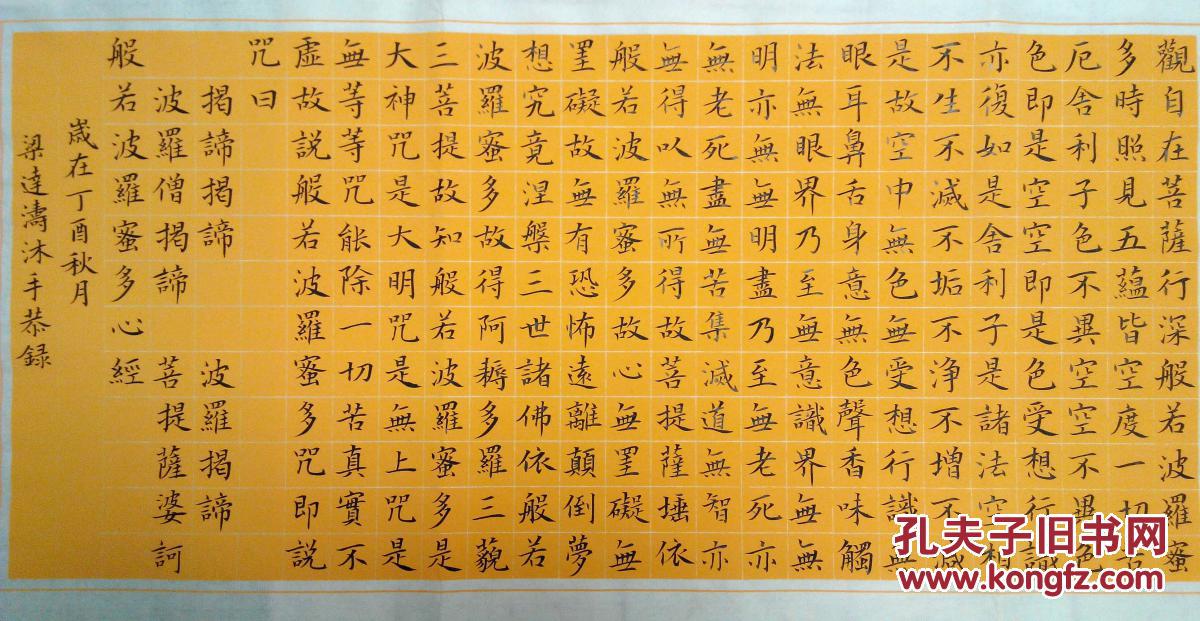 觀自在菩薩行深般若波羅蜜
多時照見五蘊皆空度一切苦
厄舍利子色不異空空不異色
色即是空空即是色受想行識
亦復如是舍利子是諸法空相
不生不滅不垢不淨不增不減
是故空中無色無受想行識無
眼耳鼻舌身意無色聲香味觸
法無眼界乃至無意識界無無
明亦無無明盡乃至無老死亦
無老死盡無苦集滅道無智亦
無得以無所得故菩提薩埵依
般若波羅蜜多故心無罣礙無
罣礙故無有恐怖遠離顛倒夢
想究竟涅槃三世諸佛依般若
波羅蜜多故得阿耨多羅三藐
三菩提故知般若波羅蜜多是
大神咒是大明咒是無上咒是
無等等咒能除一切苦真實不
虛故説般若波羅蜜多咒即説
咒曰
揭諦揭諦 波羅揭諦
波羅僧揭諦 菩提薩婆訶
般若波羅蜜多心經
嵗在丁酉秋月
梁達濤沐手恭録
孔夫子旧书网
www.kongfz.com